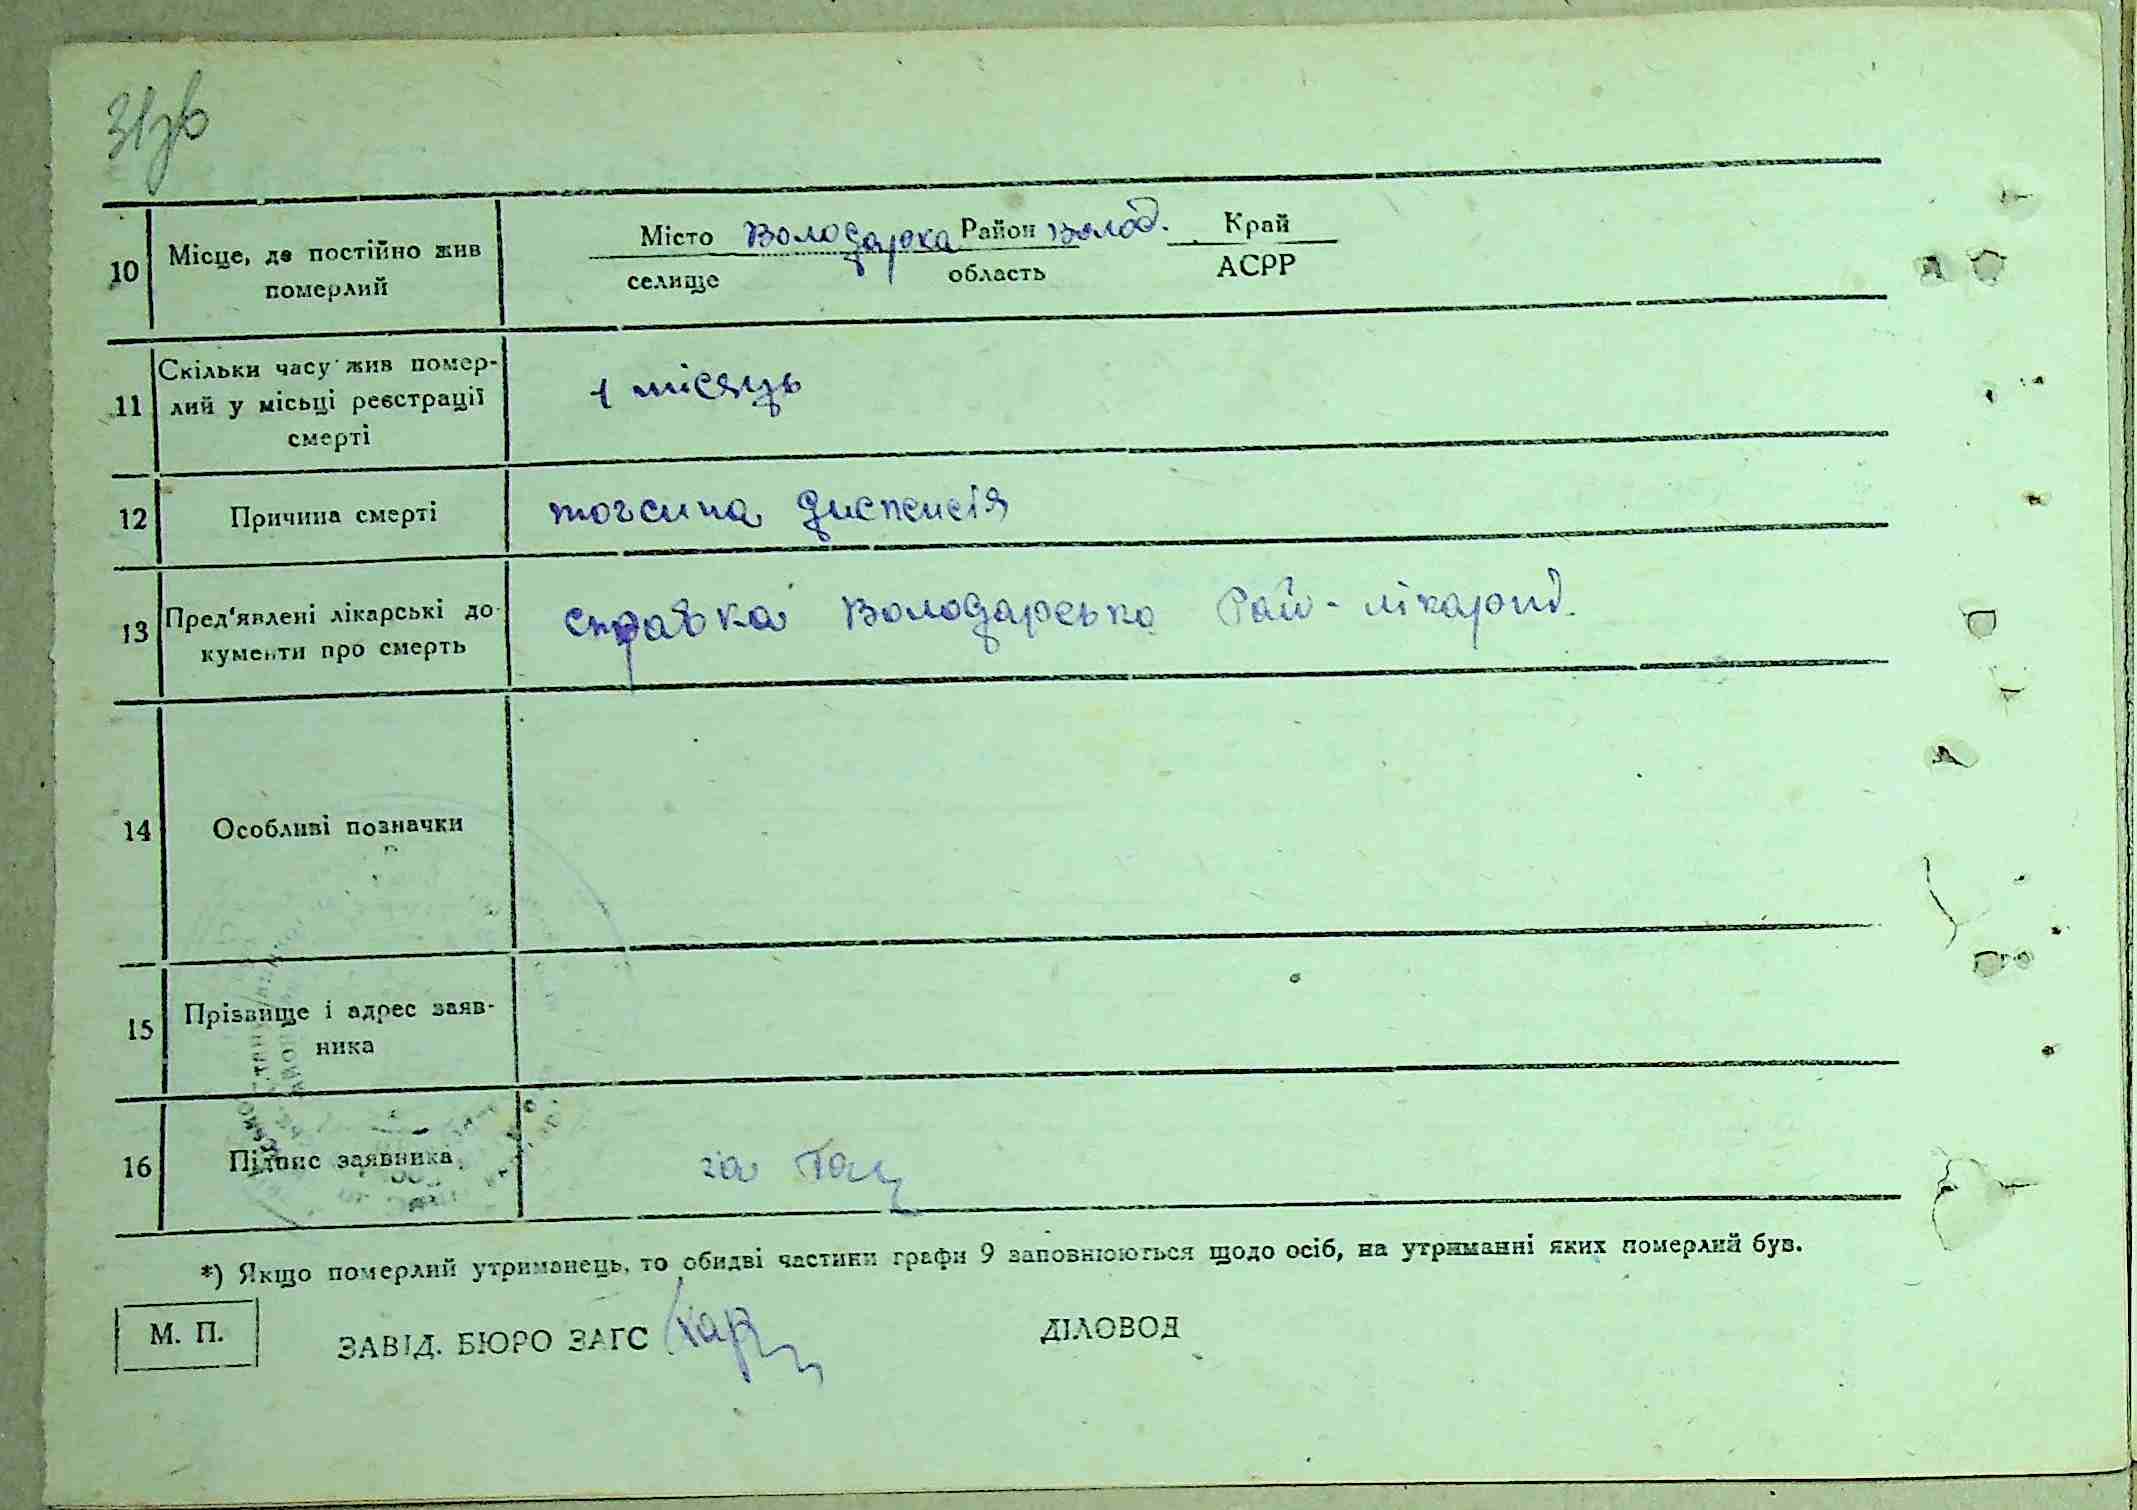 31зв
10 Місце, де постійно жив Місто Володарка Район Волод. Край
померлий селище область АСРР
Скільки часу жив помер-
11 лий у місьці реєстрації 1 місяць
смерті
12 Причина смерті токсична диспепсія
13 Пред'явлені лікарські до- справка Володарська Рай-лікарні
кументи про смерть
14 Особливі позначки
15 Прізвище і адрес заяв-
ника
16 Підпис заявника за
*) Якщо померлий утриманець, то обидві частини графи 9 заповнюються щодо осіб, на утриманні яких померлий був.
М. П. ЗАВІД. БЮРО ЗАГС ДІЛОВОД